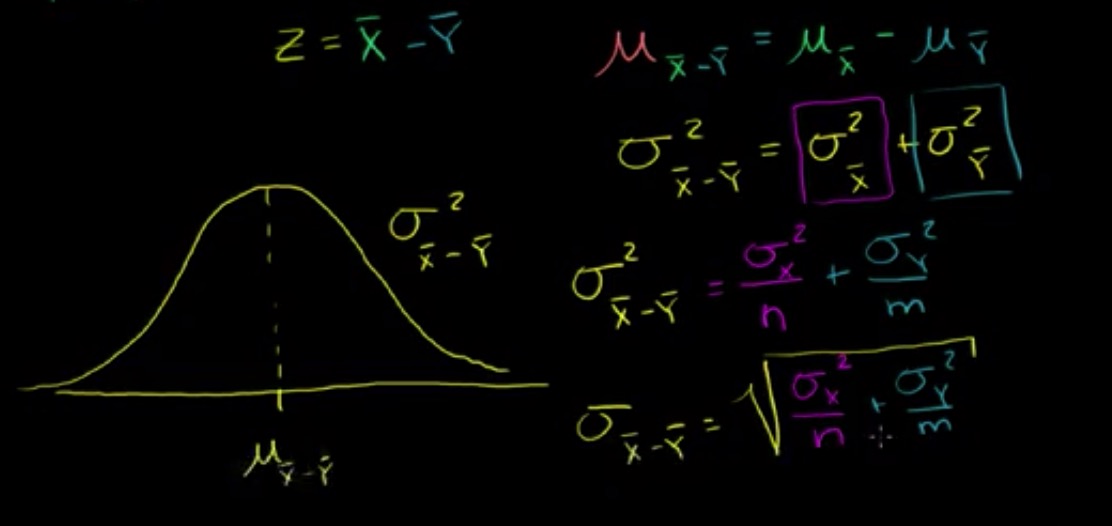 z = X̄ - Ȳ
μ_X̄-Ȳ = μ_X̄ - μ_Ȳ
σ²_X̄-Ȳ = σ²_X̄ + σ²_Ȳ
σ²_X̄-Ȳ
σ²_X̄-Ȳ = σ_X²/n + σ_Y²/m
σ_X̄-Ȳ = √(σ_X²/n + σ_Y²/m)
μ_X̄-Ȳ